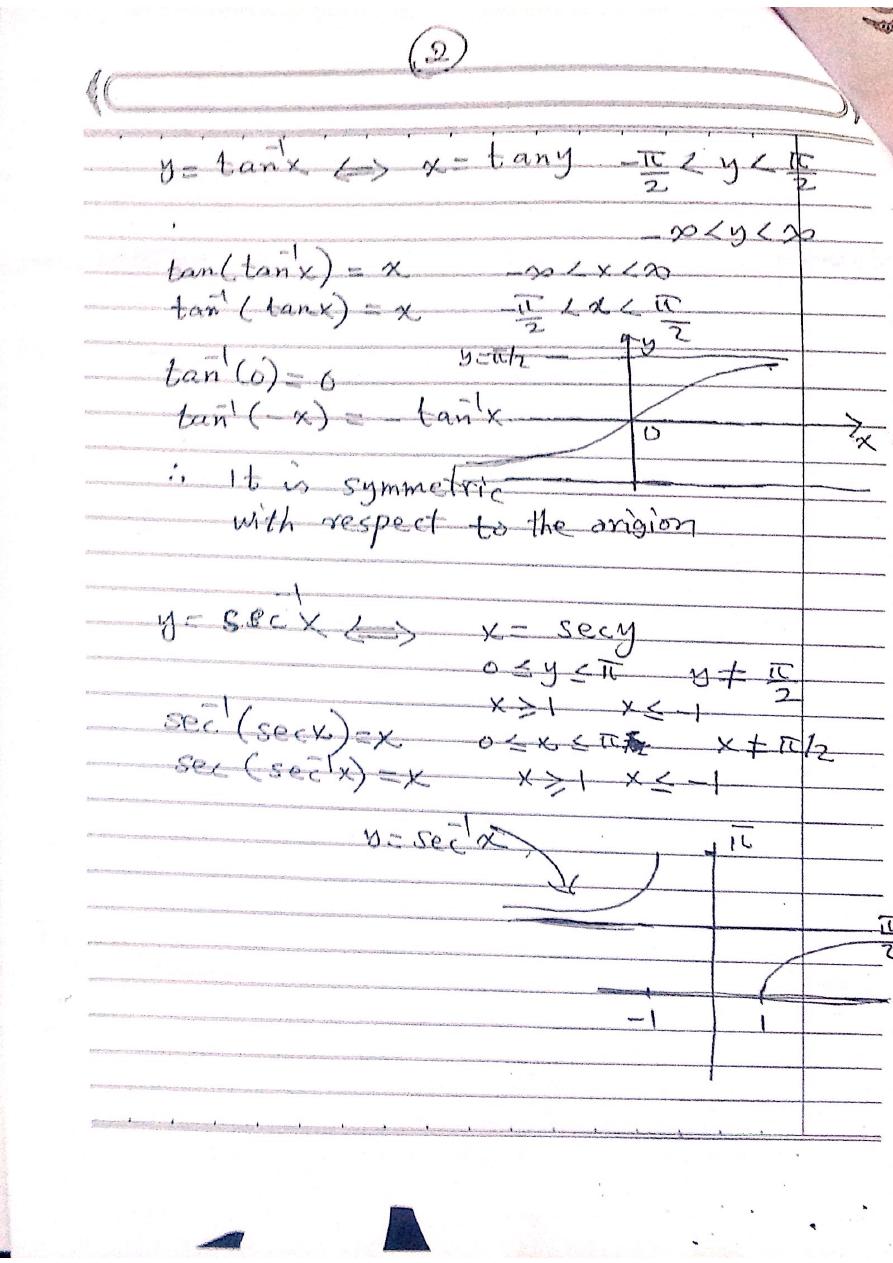 2
y = tan⁻¹x ⟺ x = tan y   -π/2 < y < π/2
-∞ < y < ∞
tan(tan⁻¹x) = x   -∞ < x < ∞
tan⁻¹(tan x) = x   -π/2 < x < π/2
y
y = π/2
tan⁻¹(0) = 0
tan⁻¹(-x) = - tan⁻¹x
0
x
∴ It is symmetric
with respect to the origion
y = sec⁻¹x ⟺ x = sec y
0 ≤ y ≤ π   y ≠ π/2
x ≥ 1   x ≤ -1
sec⁻¹(sec x) = x   0 ≤ x ≤ π   x ≠ π/2
sec(sec⁻¹x) = x   x ≥ 1   x ≤ -1
y = sec⁻¹x
π
π/2
-1   1